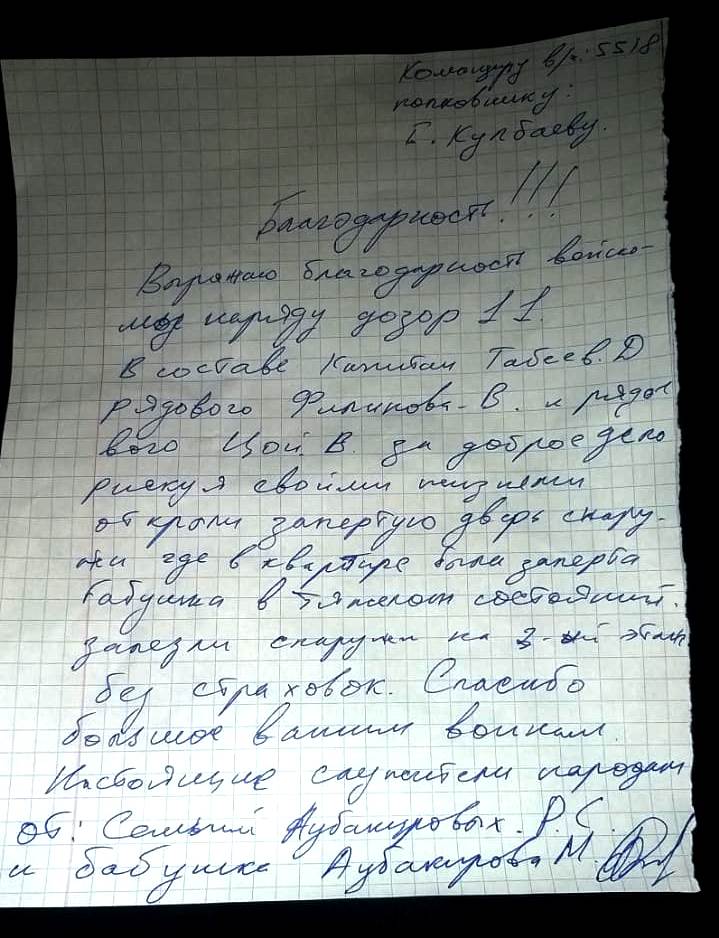 Командиру в/ч: 5518
полковнику:
Б. Кулбаеву.
Благодарность!!!
Выражаю благодарность войско-
мог наряду дозор 11.
В составе Капитан Табеев. Д
рядового Филинова. В. и рядо
вого Цой. В. за доброе дело
рискуя своими жизнями
открыли запертую дверь снару-
жи где в квартире была заперта
бабушка в тяжелом состоянии.
залезли снаружи на 3-ий этаж
без страховок. Спасибо
большое вашим воинам.
Настоящие служители народам
от: Семьии Аубакировых. Р. С.
и бабушка Аубакирова М.